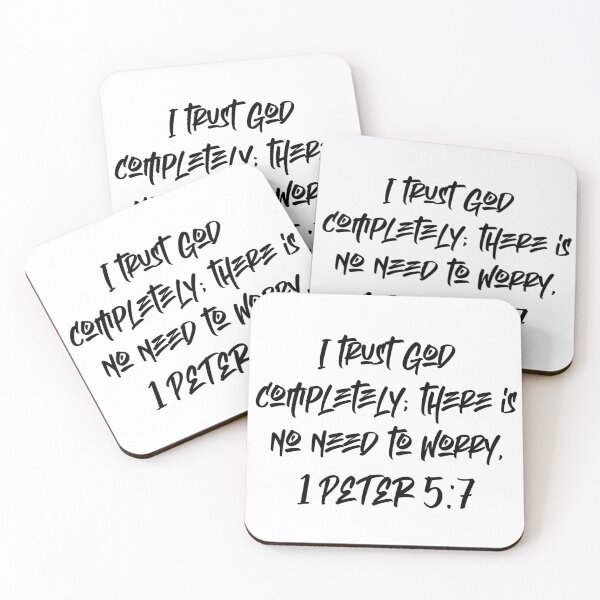 I TRUST GOD
COMPLETELY; THERE
I TRUST GOD
COMPLETELY; THERE IS
NO NEED TO WORRY.
I TRUST GOD
COMPLETELY; THERE IS
NO NEED TO WORRY.
1 PETER
I TRUST GOD
COMPLETELY; THERE IS
NO NEED TO WORRY.
1 PETER 5:7